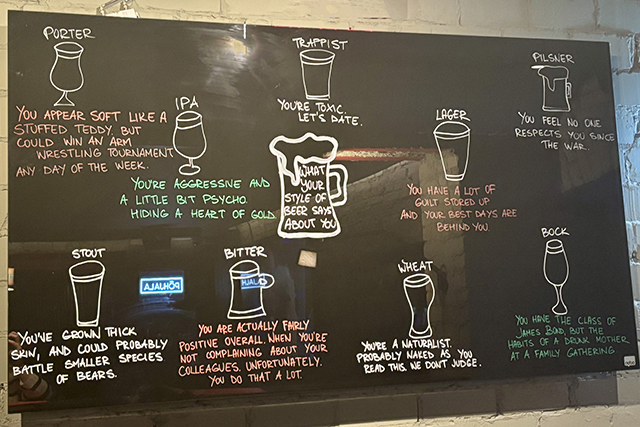 PORTER
YOU APPEAR SOFT LIKE A
STUFFED TEDDY, BUT
COULD WIN AN ARM
WRESTLING TOURNAMENT
ANY DAY OF THE WEEK.
IPA
YOU'RE AGGRESSIVE AND
A LITTLE BIT PSYCHO.
HIDING A HEART OF GOLD.
TRAPPIST
YOU'RE TOXIC.
LET'S DATE.
WHAT
YOUR
STYLE OF
BEER SAYS
ABOUT YOU
LAGER
YOU HAVE A LOT OF
GUILT STORED UP
AND YOUR BEST DAYS ARE
BEHIND YOU.
PILSNER
YOU FEEL NO ONE
RESPECTS YOU SINCE
THE WAR.
STOUT
YOU'VE GROWN THICK
SKIN, AND COULD PROBABLY
BATTLE SMALLER SPECIES
OF BEARS.
BITTER
YOU ARE ACTUALLY FAIRLY
POSITIVE OVERALL. WHEN YOU'RE
NOT COMPLAINING ABOUT YOUR
COLLEAGUES. UNFORTUNATELY.
YOU DO THAT A LOT.
WHEAT
YOU'RE A NATURALIST.
PROBABLY NAKED AS YOU
READ THIS. WE DON'T JUDGE.
BOCK
YOU HAVE THE CLASS OF
JAMES BOND, BUT THE
HABITS OF A DRUNK MOTHER
AT A FAMILY GATHERING
PÕHJALA